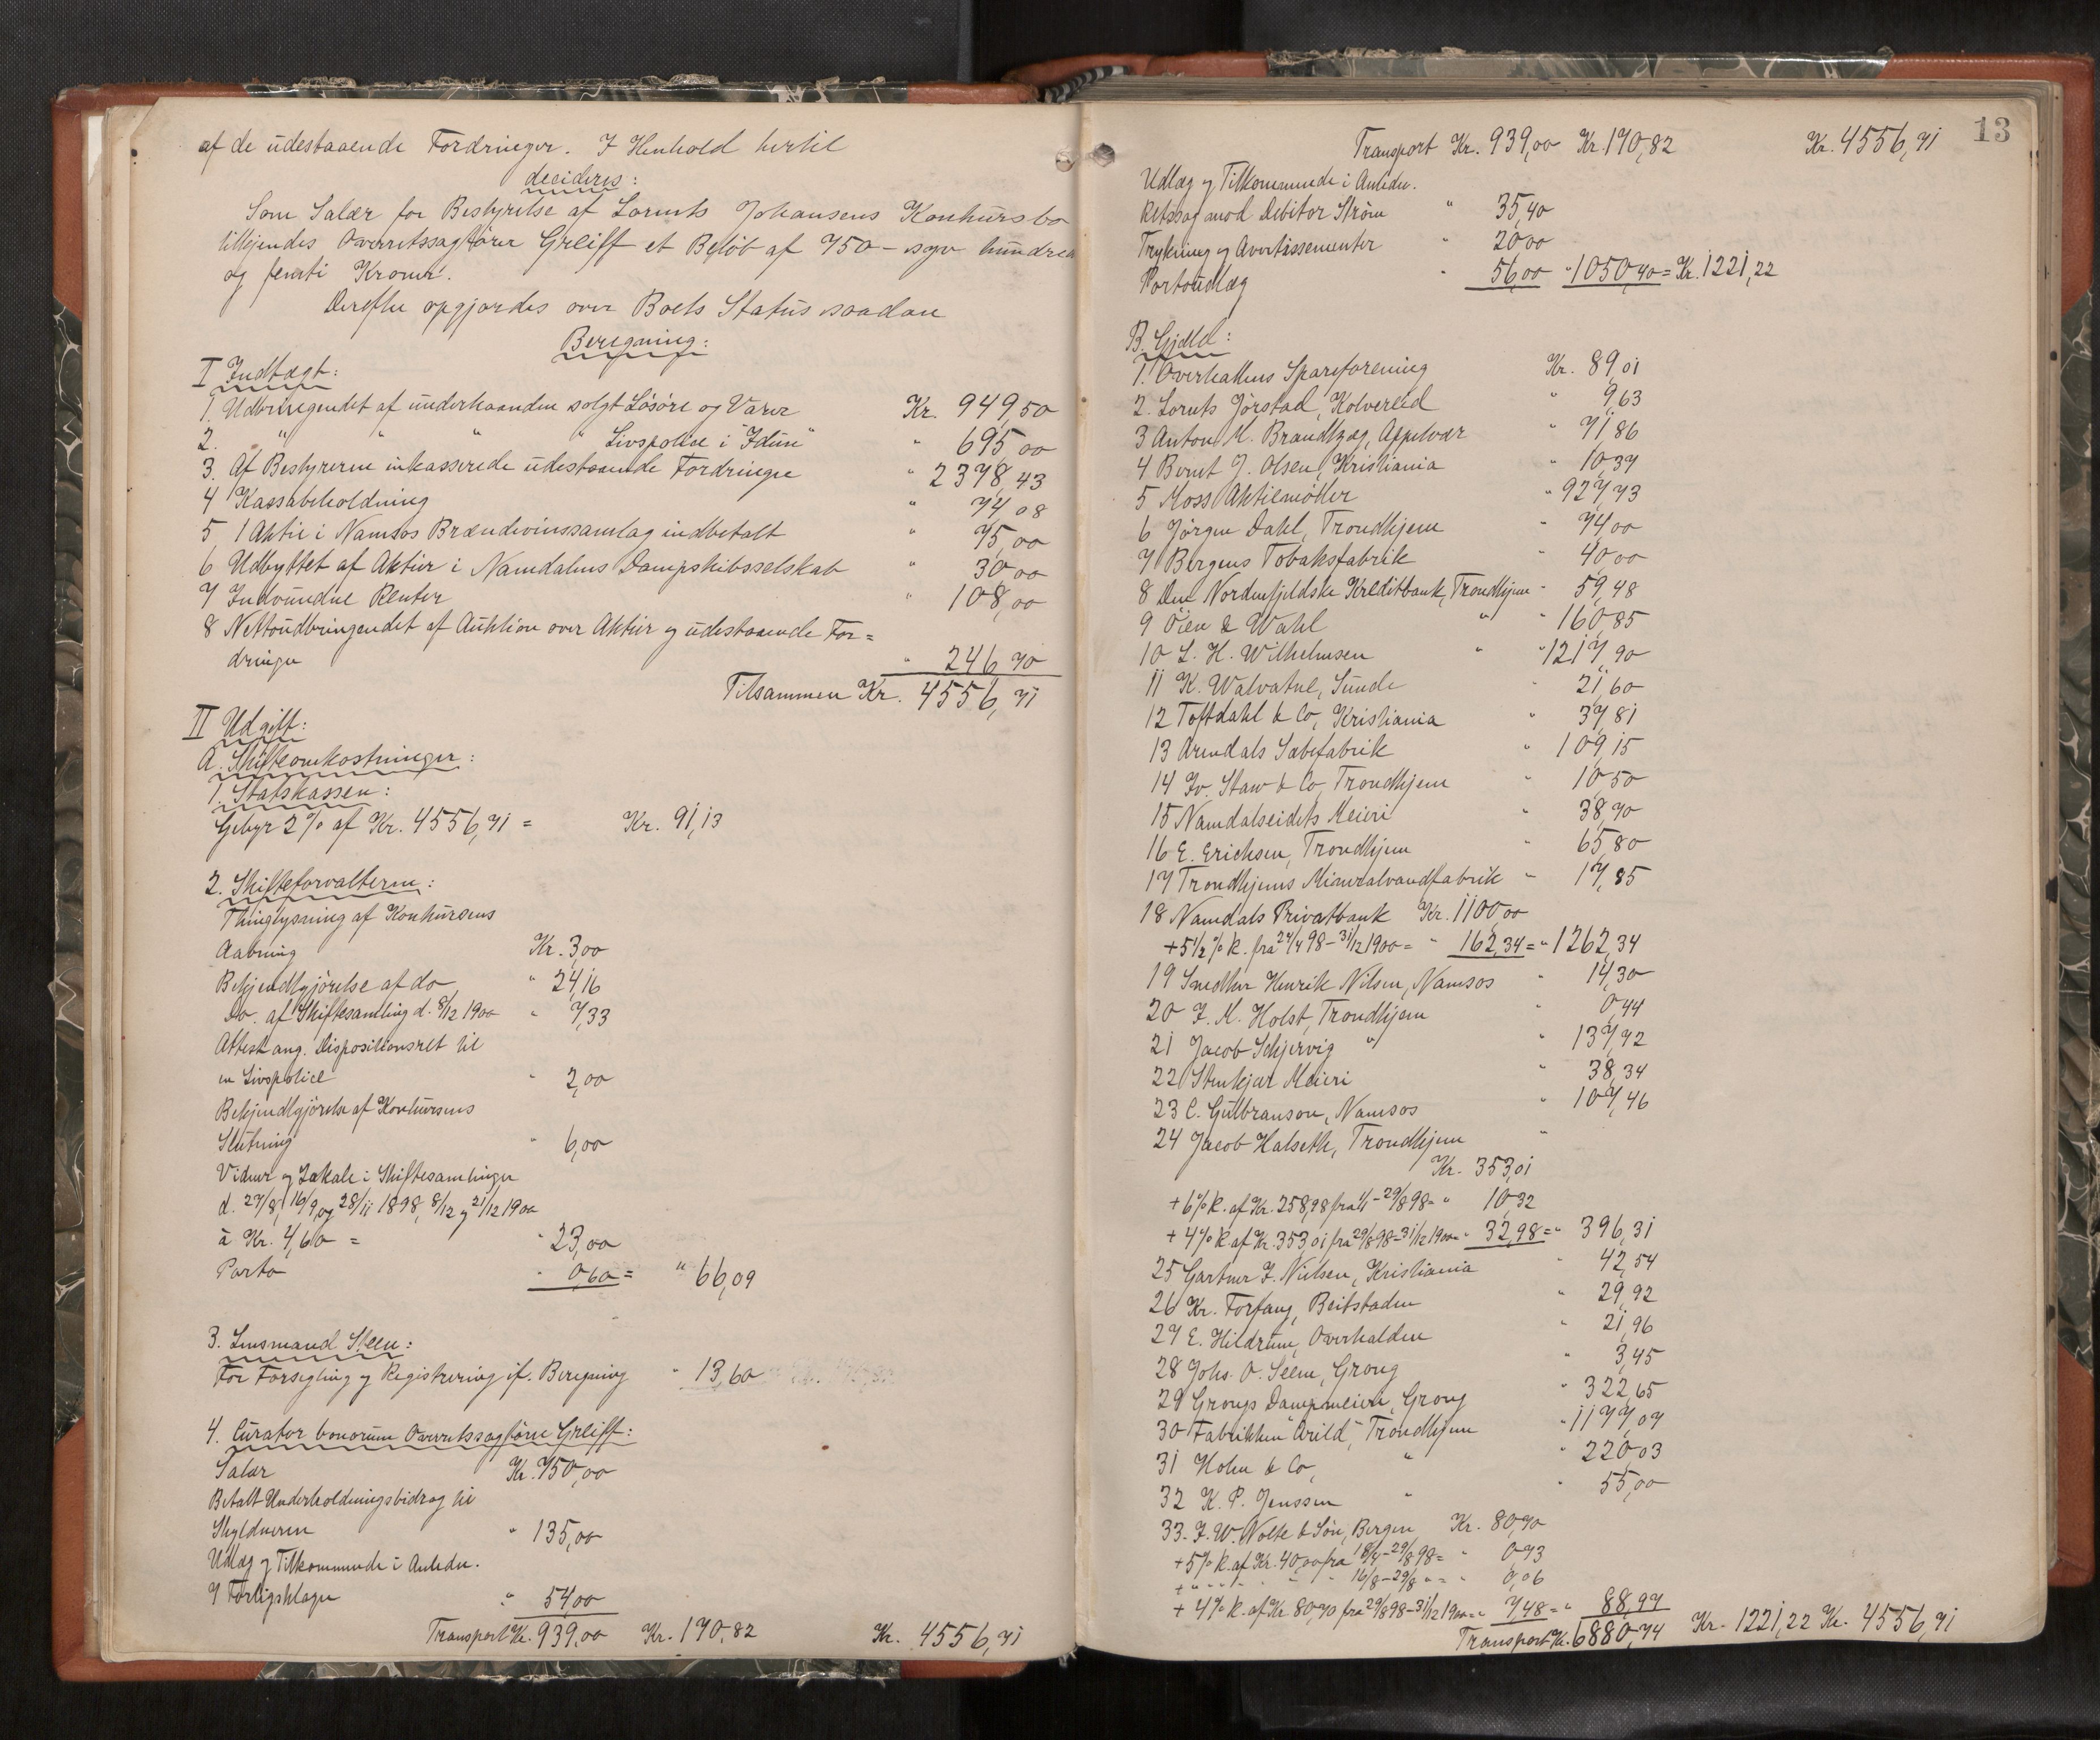 af de udestaaende Fordringer. I Henhold hertil
decideres:
Som Salær for Bestyrelse af Lornts Johansens Konkursbo
tilkjendes Overretssagfører Greiff et Beløb af 750 - syv hundrede
og femti Kroner.
Derefter opgjordes over Boets Status saadan
Beregning:
I Indtægt:
1. Udbringendet af underhaanden solgt Løsøre og Varer Kr. 949,50
2. " " " " Livspolice i "Idun" " 695,00
3. Af Bestyreren inkasserede udestaaende Fordringer " 2378,43
4 Kassabeholdning " 74,08
5 1 Aktie i Namsos Brændevinssamlag indbetalt " 75,00
6 Udbyttet af Aktier i Namdalens Dampskibsselskab " 30,00
7 Indvundne Renter " 108,00
8 Nettoudbringendet af Auktion over Aktier og udestaaende For=
dringer " 246,70
Tilsammen Kr. 4556,71
II Udgift:
A. Skifteomkostninger:
1. Statskassen:
Gebyr 2% af Kr. 4556,71 = Kr. 91,13
2. Skifteforvalteren:
Thinglysning af Konkursens
Aabning Kr. 3,00
Bekjendtgjørelse af do " 24,16
Do. af Skiftesamling d. 8/12 1900 " 7,33
Attest ang. Dispositionsret til
en Livspolice " 2,00
Bekjendtgjørelse af Konkursens
Slutning " 6,00
Vidner og Lokale i Skiftesamlinger
d. 27/8, 16/9, og 28/11 1898, 8/12 og 21/12 1900
à Kr. 4,60 = " 23,00
Porto " 0,60 = " 66,09
3. Lensmand Steen:
For Forsegling og Registrering if. Beregning " 13,60
4. Curator bonorum Overretssagfører Greiff:
Salær Kr. 750,00
Betalt Underholdningsbidrag til
Skyldneren " 135,00
Udlæg og Tilkommende i Anledn.
7 Forligsklager " 54,00
Transport Kr. 939,00 Kr. 170,82 Kr. 4556,71
13
Transport Kr. 939,00 Kr. 170,82 Kr. 4556,71
Udlæg og Tilkommende i Anledn.
Retssag mod Debitor Strøm " 35,40
Trykning og Avertissementer " 20,00
Portoudlæg " 56,00 " 1050,40 = Kr. 1221,22
B. Gjæld:
1. Overhallens Spareforening Kr. 89,01
2. Lornts Jørstad, Kolvereid " 9,63
3 Anton M. Brandtzæg, Appelvær " 71,86
4 Bernt J. Olsen, Kristiania " 10,37
5 Moss Aktiemøller " 927,73
6 Jørgen Dahl, Trondhjem " 74,00
7 Bergens Tobaksfabrik " 40,00
8 Den Nordenfjeldske Kreditbank, Trondhjem " 59,48
9 Öien & Wahl " " 160,85
10 L. H. Wilhelmsen " " 1217,90
11 K. Walvatne, Sunde " 21,60
12 Toftdahl & Co, Kristiania " 37,81
13 Arendals Sæbefabrik " 109,15
14 Jo. Staw & Co, Trondhjem " 10,50
15 Namdalseidets Meieri " 38,70
16 E. Erichsen, Trondhjem " 65,80
17 Trondhjems Mineralvandfabrik " 17,85
18 Namdals Privatbank Kr. 1100,00
+ 5 1/2 % R. fra 24/4 98 - 31/12 1900 = " 162,34 = " 1262,34
19 Snedker Henrik Nilsen, Namsos " 14,30
20 F. M. Holst, Trondhjem " 0,44
21 Jacob Schjervig " " 137,92
22 Stenkjær Meieri " 38,34
23 C. Gulbranson, Namsos " 107,46
24 Jacob Halseth, Trondhjem "
Kr. 353,01
+ 6% R. af Kr. 258,98 fra 1/1 - 29/8 98 = " 10,32
+ 4% R. af Kr. 353,01 fra 29/8 98 - 31/12 1900 = " 32,98 = " 396,31
25 Gartner F. Nielsen, Kristiania " 42,54
26 Kr. Forfang, Beitstaden " 29,92
27 E. Hildrum, Overhalden " 21,96
28 Johs. O. Seem, Grong " 3,45
29 Grongs Dampmeieri, Grong " 322,65
30 Fabrikken "Arild", Trondhjem " 1177,07
31 Holm & Co, " " 220,03
32 K. P. Jenssen " " 55,00
33. F. W. Nolte & Søn, Bergen Kr. 80,70
+ 5% R. af Kr. 40,00 fra 18/4 - 29/8 98 = " 0,73
+ " " " " " 16/8 - 29/8 " = " 0,06
+ 4% R. af Kr. 80,70 fra 29/8 98 - 31/12 1900 = " 7,48 = " 88,97
Transport Kr. 6880,74 Kr. 1221,22 Kr. 4556,71